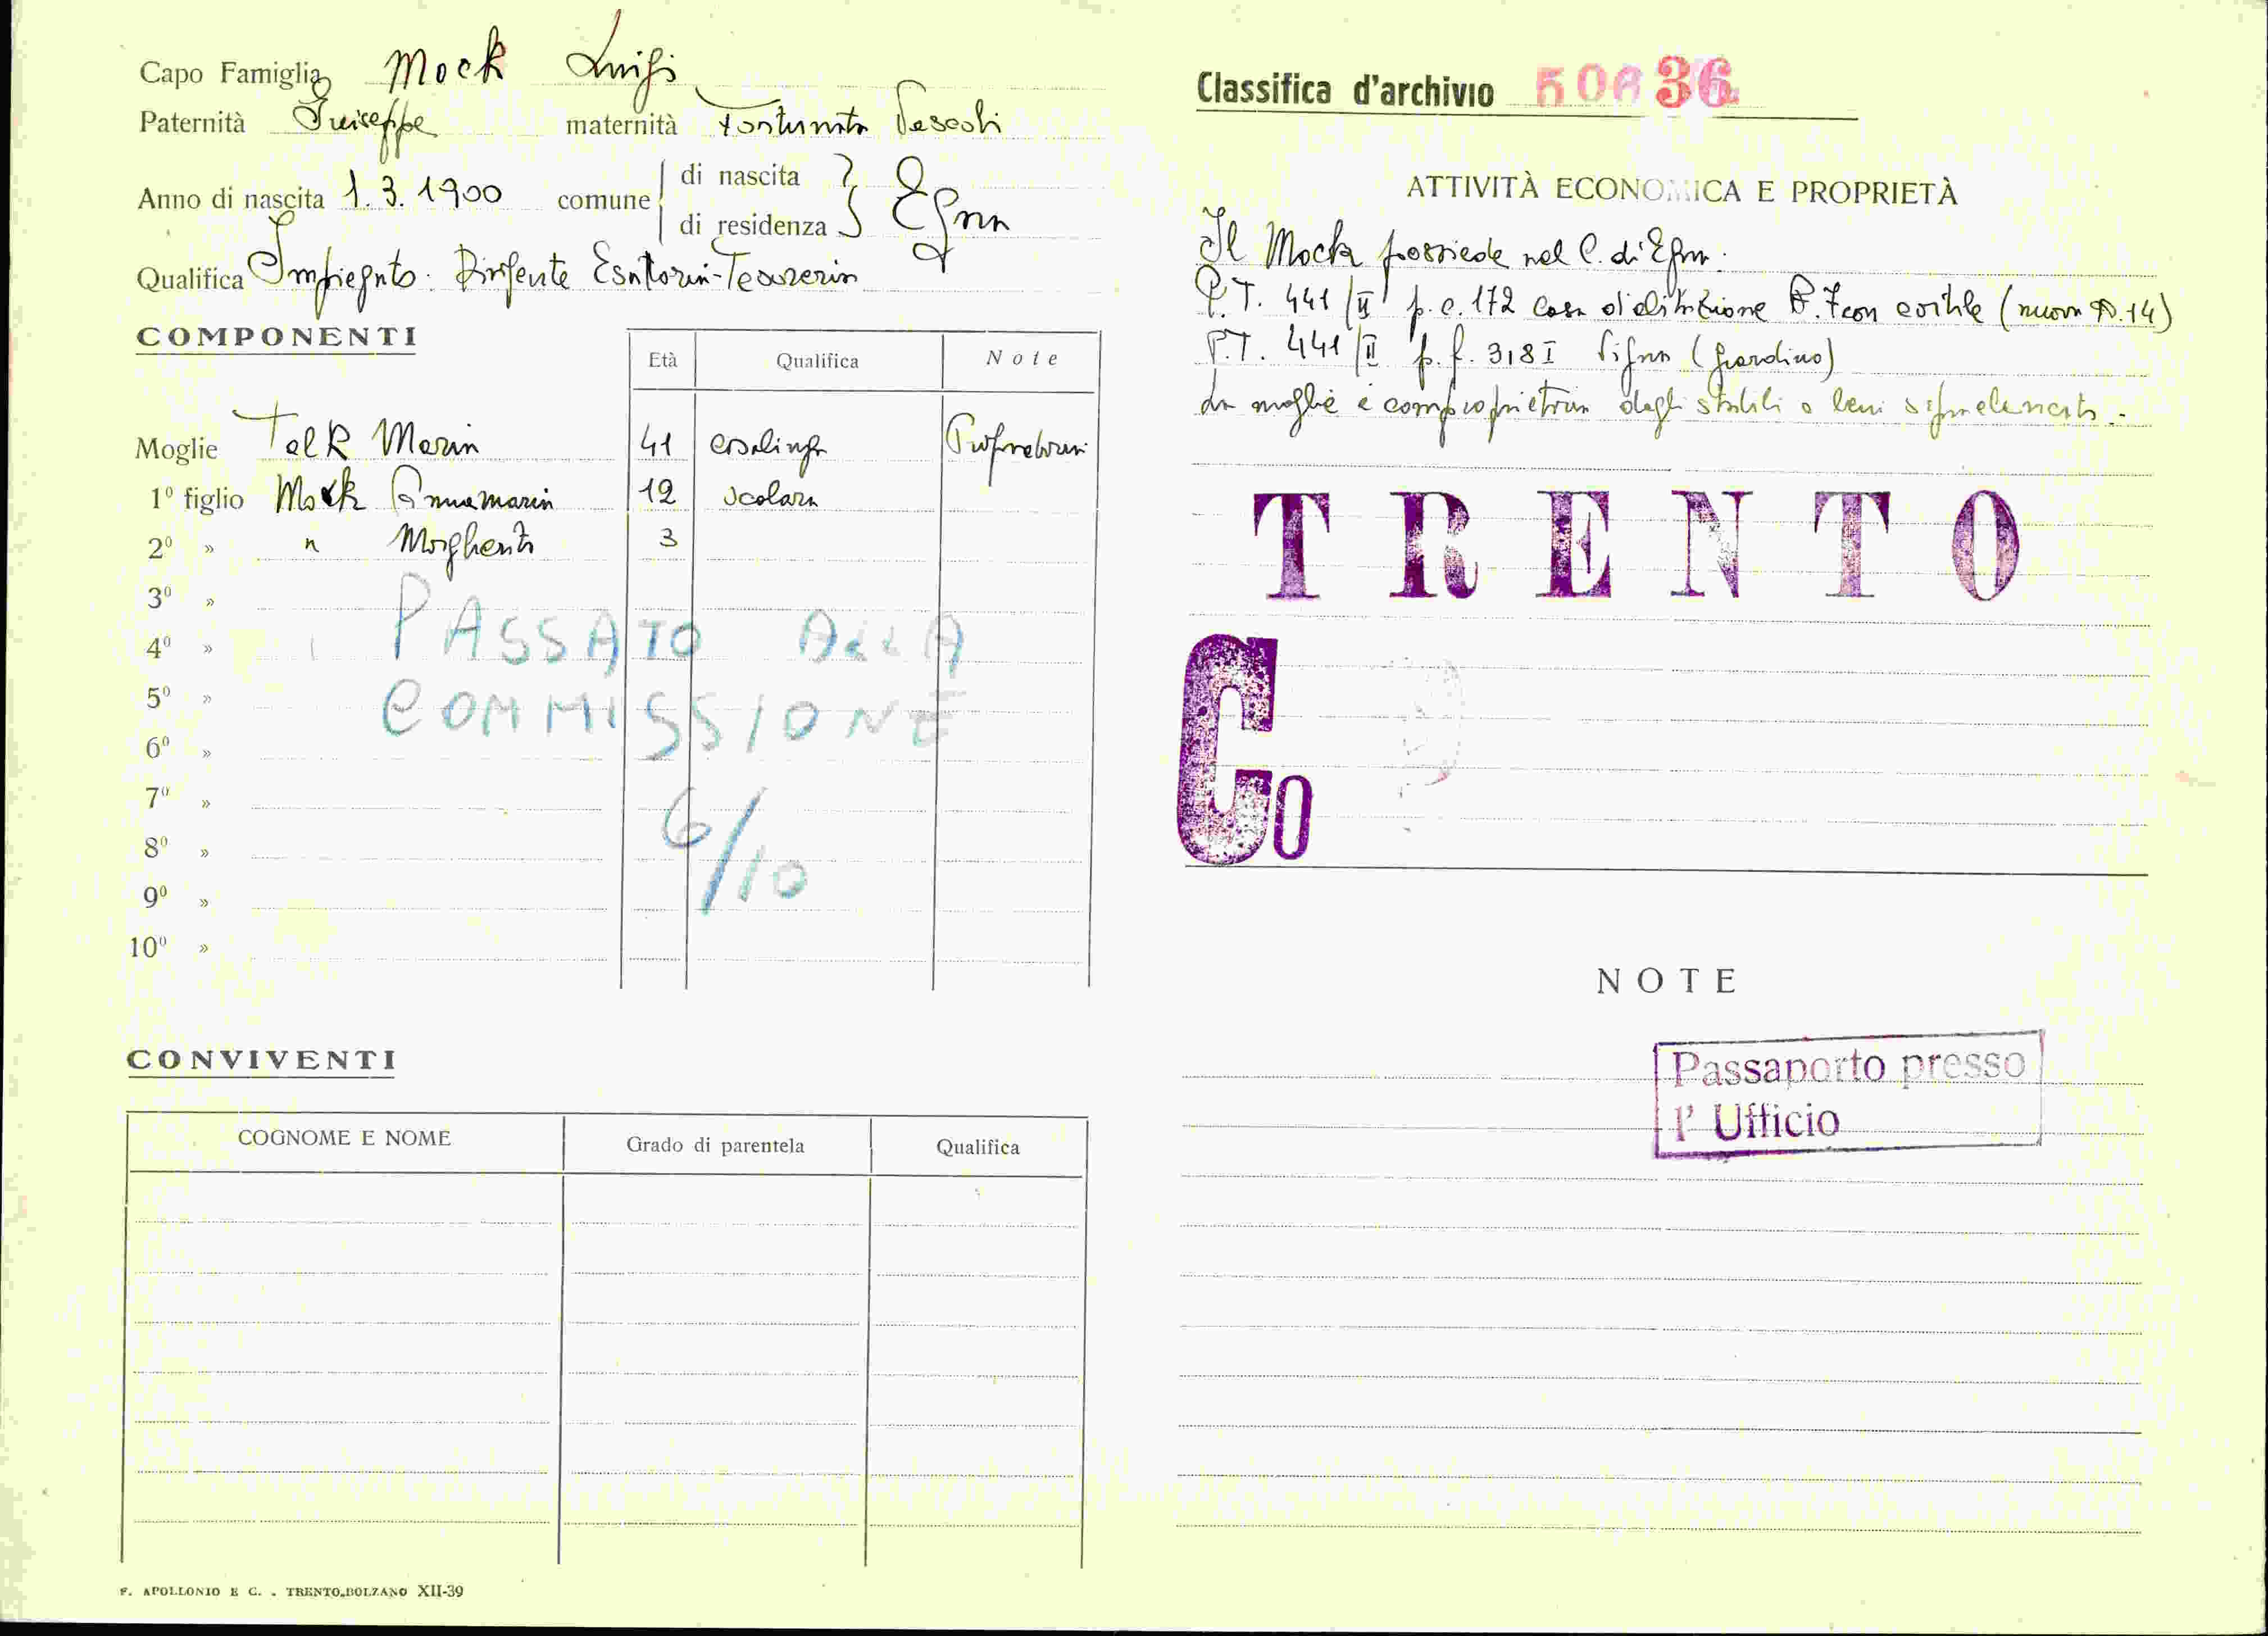 Capo Famiglia Mock Luigi
Paternità Giuseppe maternità Fortunata
Anno di nascita 1.3.1900 comune di nascita Egna
di residenza
Qualifica Impiegato. Dirigente Esattoria-Tesoreria
COMPONENTI
Età Qualifica Note
Moglie Telk Maria 41 casalinga
1º figlio Mock Annamaria 12 scolara
2º » " Margherita 3
3º »
4º »
5º »
6º »
7º »
8º »
9º »
10º »
PASSATO ALLA
COMMISSIONE
6/10
CONVIVENTI
COGNOME E NOME Grado di parentela Qualifica
F. APOLLONIO E C. - TRENTO-BOLZANO XII-39
Classifica d'archivio 50636
ATTIVITÀ ECONOMICA E PROPRIETÀ
Il Mock possiede nel C. di Egna:
P.T. 441/II p.e. 172 casa d'abitazione N. 7 con cortile (nuovo N. 14)
P.T. 441/II p.f. 318 I Vigna (giardino)
La moglie è comproprietaria degli stabili o beni
TRENTO
Co
NOTE
Passaporto presso
l' Ufficio